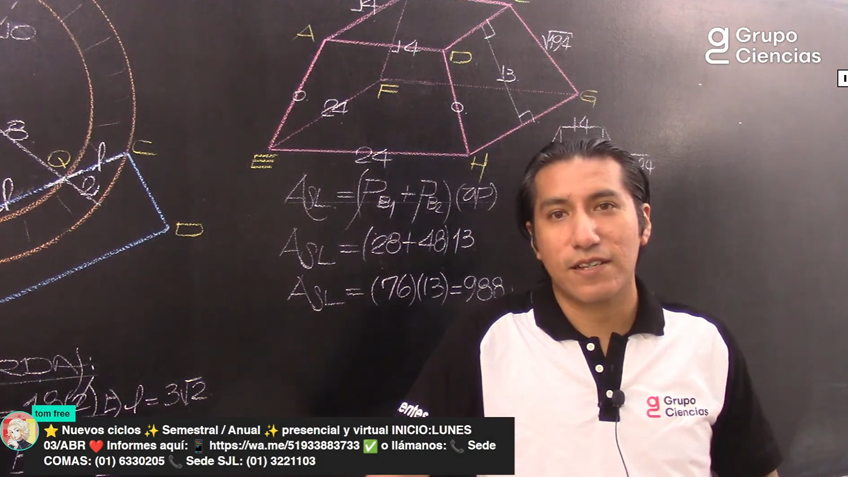 14
A
14
D
√194
Grupo
Ciencias
13
F
24
G
B
14
Q
l
C
E
24
H
l
2
A_SL = (P_B1 + P_B2)(ap)
D
A_SL = (28+48)13
A_SL = (76)(13)=988
l = 3√2
Grupo
Ciencias
tom free
⭐ Nuevos ciclos ✨ Semestral / Anual ✨ presencial y virtual INICIO:LUNES
03/ABR ❤️ Informes aquí: 📱 https://wa.me/51933883733 ✅ o llámanos: 📞 Sede
COMAS: (01) 6330205 📞 Sede SJL: (01) 3221103